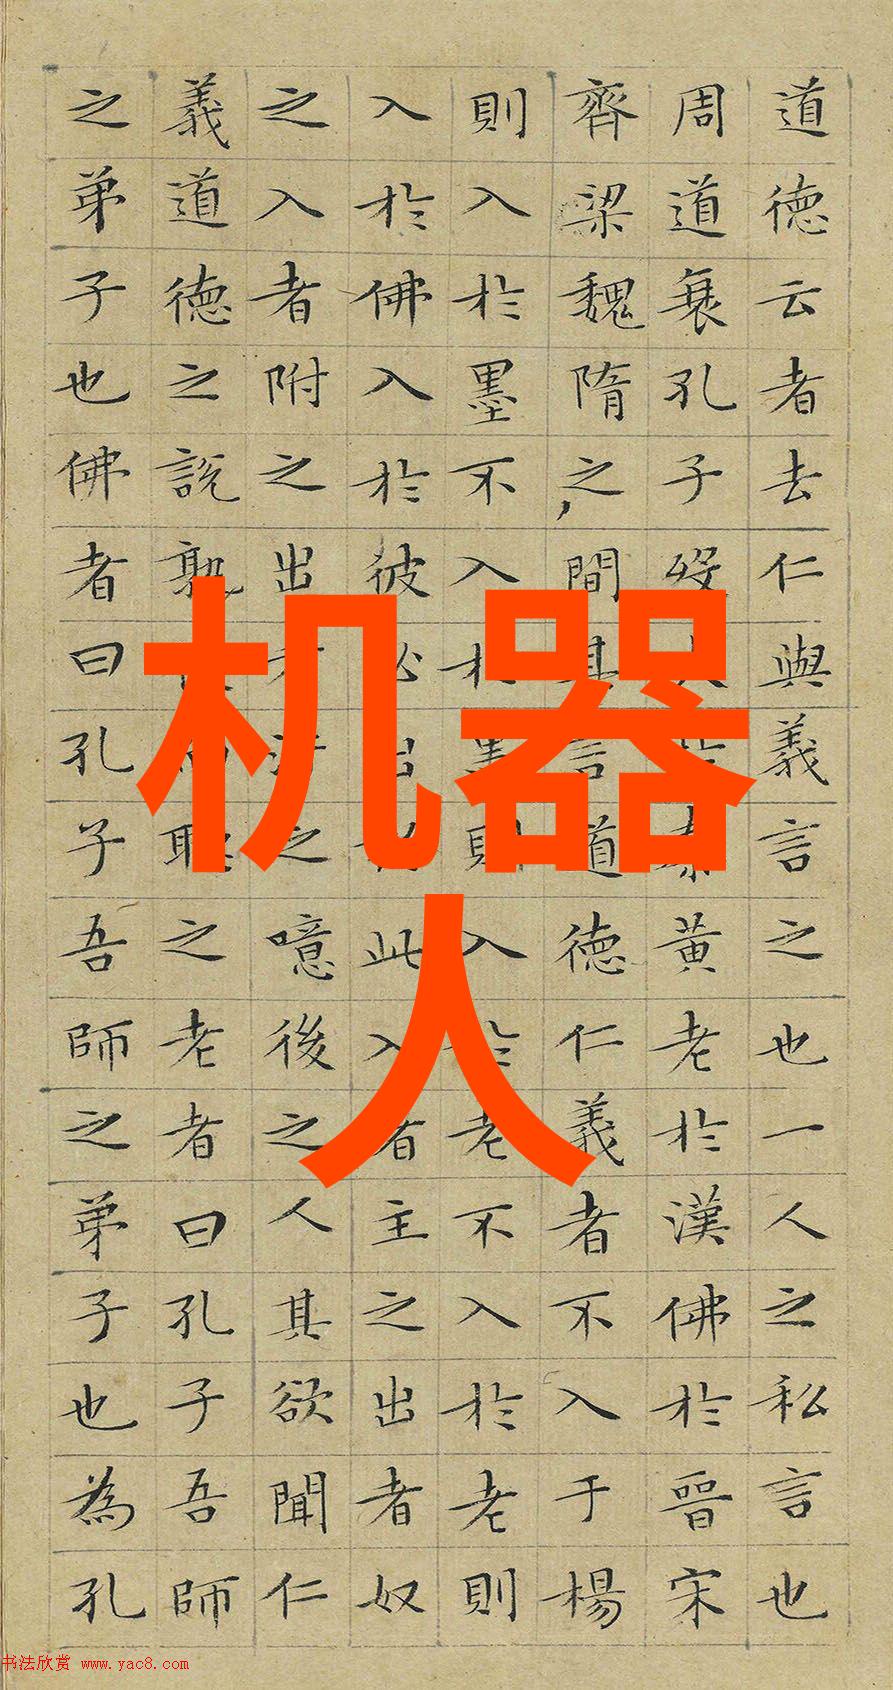 道德云者去仁與義言之也一人之私言也
周道衰孔子歿黃老於漢佛於晉宋
齊梁魏隋之間其言道德仁義者不入于楊
則入於墨不入於墨則入於老不入於老則
入於佛入於彼必出此入者主之出者奴
之入者附之出之噫後之人其欲聞仁
義道德之說孰聽之老者曰孔子吾師
之弟子也佛者曰孔子吾師之弟子也為孔
机器
人
书法欣赏 www.yac8.com